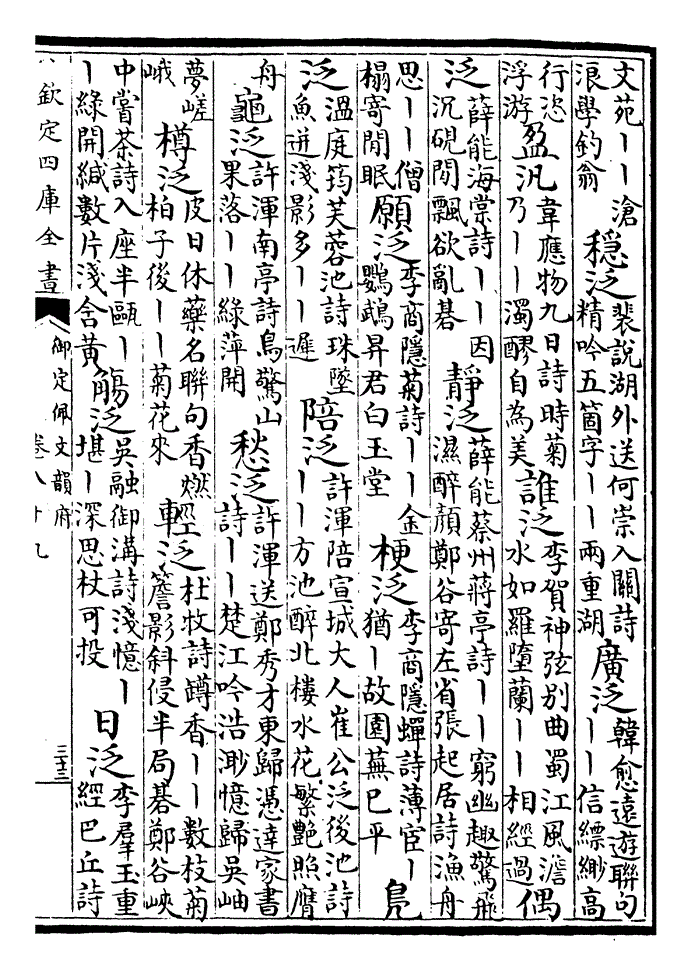 文苑丨丨滄
浪學釣翁
穩泛
裴說湖外送何崇入關詩
精吟五箇字丨丨兩重湖
廣泛
韓愈遠遊聯句
丨丨信縹緲高
行恣
浮游
盈汎
韋應物九日詩時菊
乃丨丨濁醪自為美
誰泛
李賀神弦別曲蜀江風澹
水如羅墮蘭丨丨相經過
偶
泛
薛能海棠詩丨丨因
沉硯閒飄欲亂碁
靜泛
薛能蔡州蔣亭詩丨丨窮幽趣驚飛
濕醉顏鄭谷寄左省張起居詩漁舟
思丨丨僧
榻寄閒眠
願泛
李商隱菊詩丨丨金
鸚鵡昇君白玉堂
梗泛
李商隱蟬詩薄宦丨
猶丨故園蕪已平
鳧
泛
溫庭筠芙蓉池詩珠墜
魚迸淺影多丨丨遲
陪泛
許渾陪宣城大人崔公泛後池詩
丨丨方池醉北樓水花繁艷照膺
舟
龜泛
許渾南亭詩鳥驚山
果落丨丨綠萍開
愁泛
許渾送鄭秀才東歸憑達家書
詩丨丨楚江吟浩渺憶歸吳岫
夢嵯
峨
樽泛
皮日休藥名聯句香燃
柏子後丨丨菊花來
輕泛
杜牧詩蹲香丨丨數枝菊
簷影斜侵半局碁鄭谷峽
中嘗茶詩入座半甌丨
丨綠開緘數片淺含黃
觴泛
吳融御溝詩淺憶丨
堪丨深思杖可投
日泛
李羣玉重
經巴丘詩
欽定四庫全書
御定佩文韻府
卷八十九
三十三